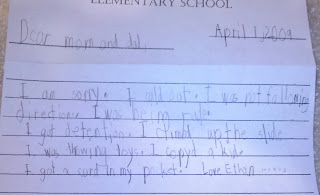 ELEMENTARY SCHOOL
April 1, 2009
Dear mom and dad,
I am sorry. I out. I was not following
direction. I was being rude.
I got detention. I climbd up the slide.
I was thowing toys. I a kide.
I got a card in my pocket. Love Ethan